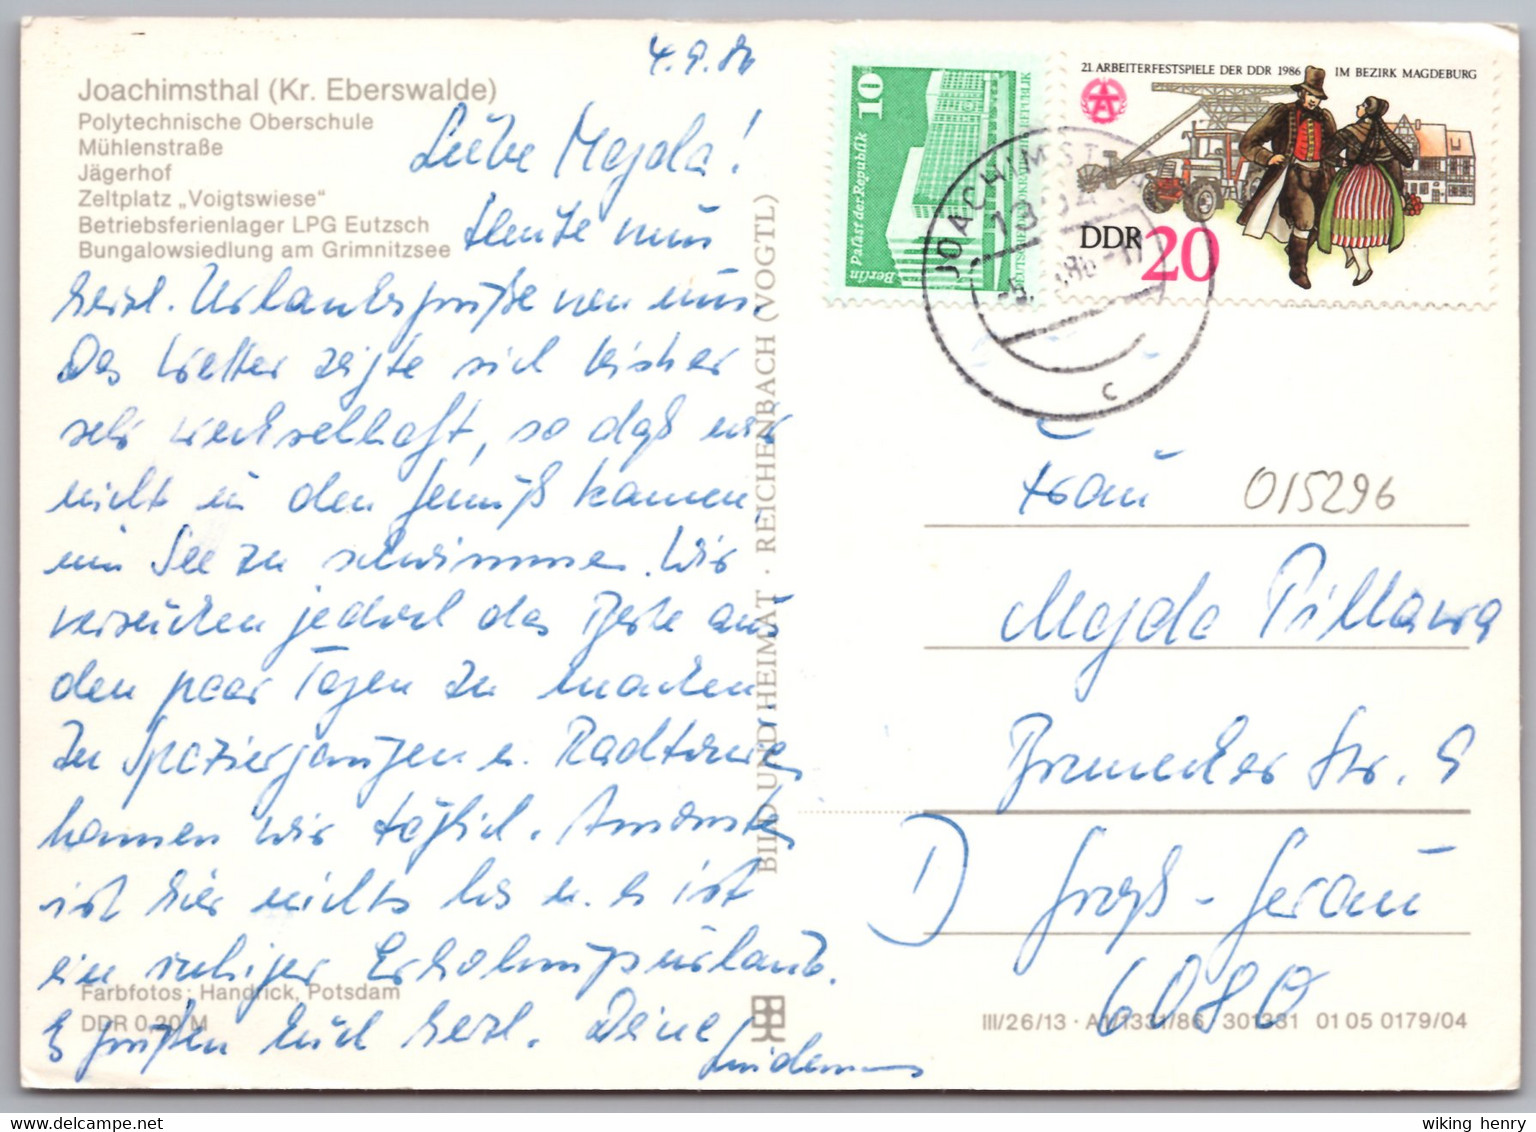 4.8.86
Joachimsthal (Kr. Eberswalde)
Polytechnische Oberschule
Mühlenstraße
Jägerhof
Zeltplatz „Voigtswiese“
Betriebsferienlager LPG Eutzsch
Bungalowsiedlung am Grimnitzsee
Liebe Magda!
Heute nun
herzl. Urlaubsgrüße von uns.
Das Wetter zeigte sich bisher
sehr wechselhaft, so daß wir
nicht in den Genuß kamen,
im See zu schwimmen. Wir
versuchen jedoch das Beste aus
den paar Tagen zu machen
Zu Spaziergängen u. Radtouren
kommen wir täglich. Ansonsten
ist hier nichts los u. es ist
ein ruhiger Erholungsurlaub.
Es grüßen Euch herzl. Deine
Lindemanns
Farbfotos: Handrick, Potsdam
DDR 0,20 M
BILD UND HEIMAT · REICHENBACH (VOGTL)
10
Berlin Palast der Republik
DEUTSCHE DEMOKRATISCHE REPUBLIK
21. ARBEITERFESTSPIELE DER DDR 1986 IM BEZIRK MAGDEBURG
DDR 20
JOACHIMSTHAL
1304
c
Frau
015296
Magda Pillawa
Brunecker Str. 9
D) Groß-Gerau
6080
III/26/13 · A1/1331/86 301331 01 05 0179/04
wiking henry